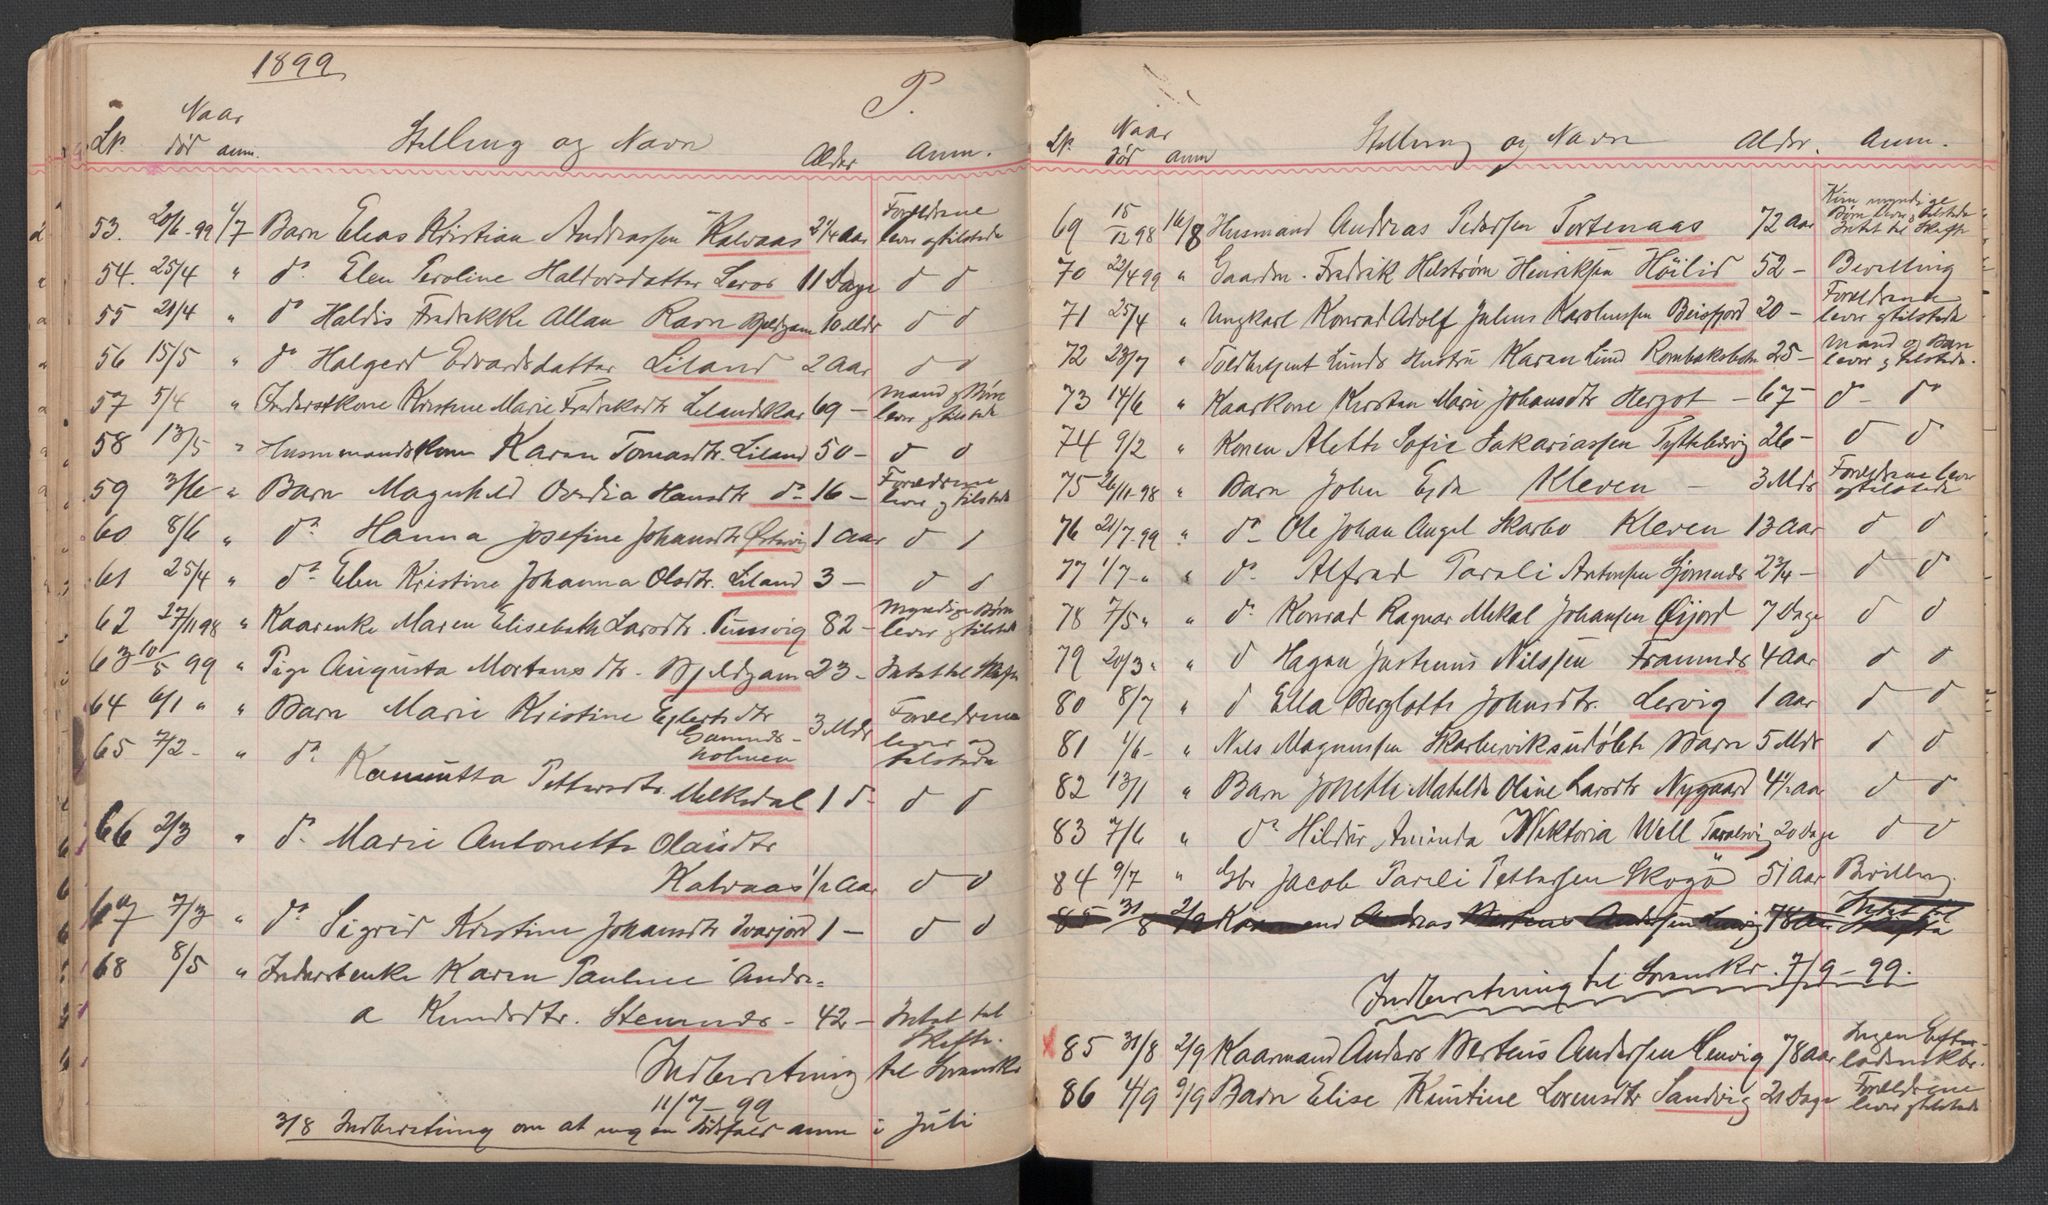 1899
P.
Naar
Lb. død anm. Stilling og Navn Alder Anm.
53. 20/6 99 1/7 Barn Elias Kristian Andreassen Kalvaas 2 1/4 Aar Forældrene lever og tilstede
54. 25/4 " do Elen Peroline Haldorsdatter Leros 11 Dage d d
55 21/4 " do Haldis Fredrikke Allan Ravn Bjeldgam 10 Mdr d d
56 15/5 " do Halgerd Edvardsdatter Liland 2 Aar d d
57 5/4 " Inderstkone Kristine Marie Fredriksdtr Lilandskar 69 – Mand og Børn lever og tilstede
58 13/5 " Husmandskone Karen Tomasdtr. Liland 50 – d d
59 3/6 " Barn Magnhild Ovedia Hansdtr do 16 – Forældrene lever og tilstede
60 8/6 " do Hanna Josefine Johansdtr Østervig 1 Aar d d
61 25/4 " do Elen Kristine Johanna Olsdtr. Liland 3 – d d
62 27/11 98 " Kaarenke Maren Elisabeth Larsdtr. Tunsvig 82 – Myndige Børn lever og tilstede
63 10/5 99 " Pige Augusta Mortensdtr. Bjeldgam 23 – Intet til Skifte
64 6/1 " " Barn Marie Kristine Egbertsdtr
Gammelholmen 3 Mdr Forældrene lever og tilstede
65 7/2 – " do Kamitta Pettersdtr. Melkedal 1 d – d d
66 2/3 " do Marie Antonette Olaisdtr
Kalvaas 1/2 Aar d d
67 7/3 " do Sigrid Kristine Johansdtr Ivarjord 1 – d d
68 8/5 " Inderstenke Karen Pauline Andrea
Knudsdtr. Stenunds – 42 – Intet til Skifte.
Indberetning til Sorenskr
11/7 – 99
3/8 Indberetning om at ingen Dødsfald anm i Juli
Naar
Lb. død anm Stilling og Navn Alder. Anm.
69 15/12 98 16/8 Husmand Andreas Pedersen Tortenaas 72 Aar Kun myndige Børn lever, tilstede Intet til Skifte
70 22/4 99 " Gaardm. Fredrik Helstrøm Henriksen Höilid 52 – Bevilling
71 25/4 " Ungkarl Konrad Adolf Julius Karolinssen Beisfjord 20 – Forældrene lever og tilstede
72 23/7 " Toldbetjent Lunds Hustru Karen Lund Rombaksbotn 25 – Mand og Barn lever og tilstede.
73 14/6 " Kaarkone Kirsten Marie Johansdtr Hergot – 67 – do – do
74 9/2 " Konen Alette Sofie Sakariassen Tyttebærvig 26 – d d
75 26/11 98 " Barn John Egda Kleven – 3 Mdr Forældrene lever og tilstede
76 21/7 99 " do Ole Johan Angel Skarbo Kleven 13 Aar d d
77 1/7 – " " do Alfred Pareli Antonsen Sjomnds 2 3/4 – d d
78 7/5 " " do Konrad Ragnar Mekal Johansen Øijord 7 Dage d d
79 20/3 " " d Hagen Justinus Nilssen Framnds 4 Aar d d
80 8/7 " d Ella Berglotte Johnsdtr. Lervig 1 Aar d d
81 1/6 – " Nils Magnussen Skarbeviksudøbte Barn 5 Mdr d d
82 13/1 " Barn Jonette Matilde Oline Larsdtr Nygaard 4 1/2 Aar d d
83 7/6 " do Hildur Aminda Wiktoria Well Taralsvig 20 Dage d d
84 9/7 " Gbr Jacob Pareli Pettersen Skogö 51 Aar Bevilling.
85 31/8 2/9 Kaarmand Andreas Berteus Andersen Lervig 78 Aar Intet til Skifte
Indberetning til Sorenskr. 7/9 – 99.
x 85 31/8 2/9 Kaarmand Anders Berteus Andersen Lervig 78 Aar Ingen Efterladenskbr.
86 4/9 9/9 Barn Elise Kunstine Lorensdtr Sandvig 21 Dage Forældrene lever og tilstede